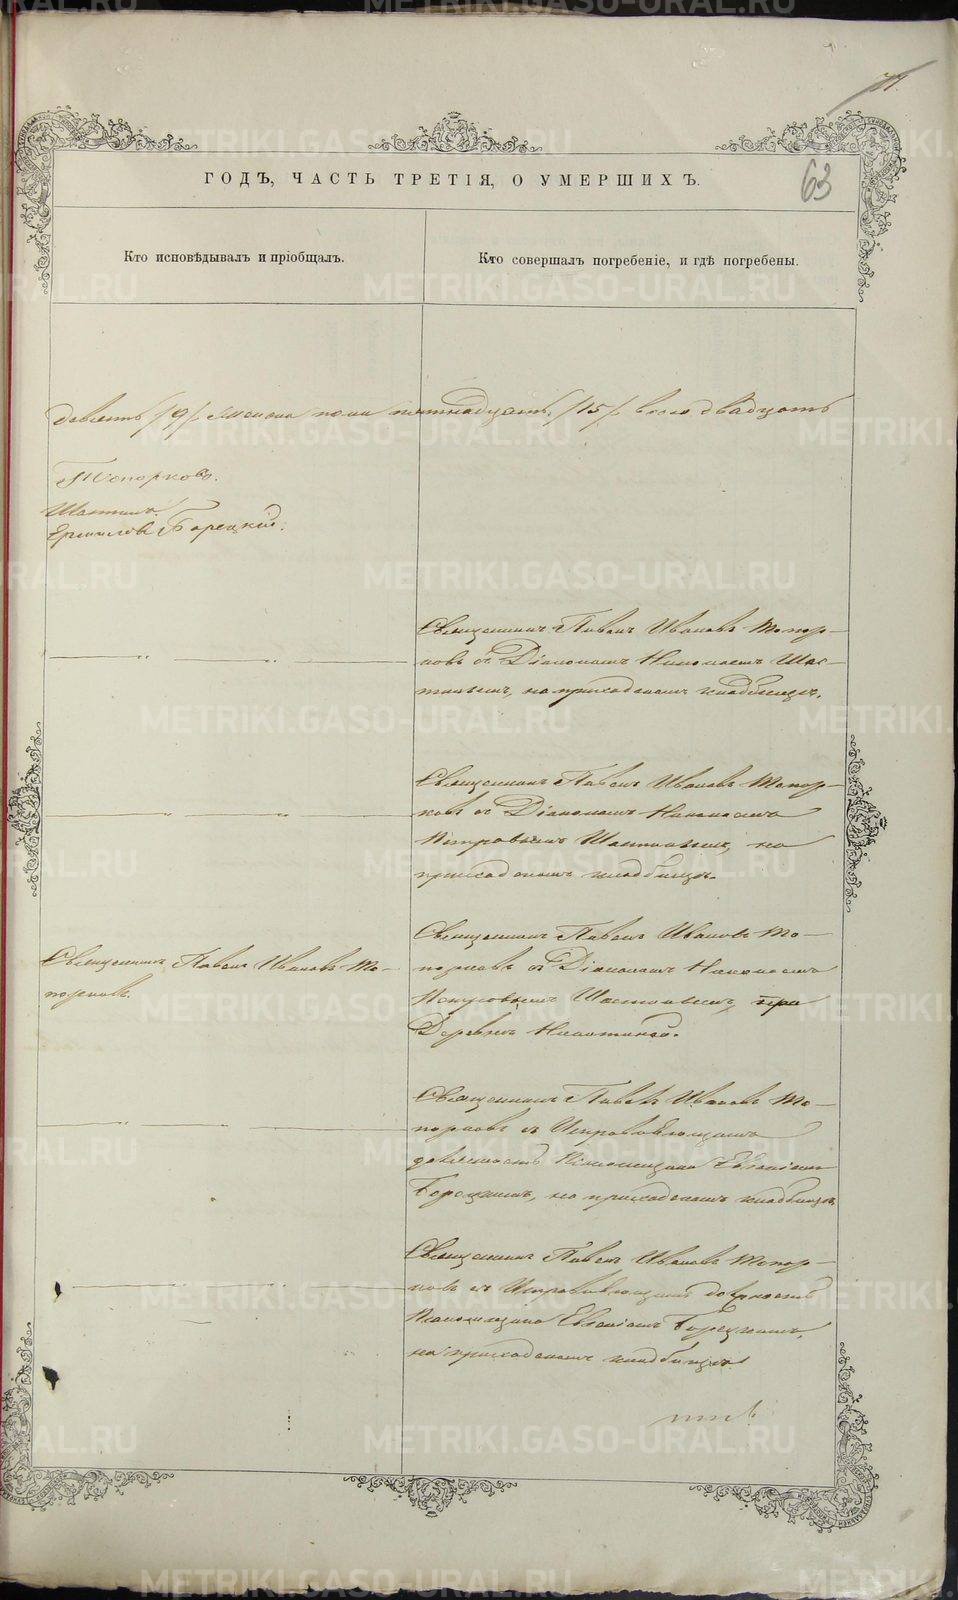 71.
63
ГОДЪ, ЧАСТЬ ТРЕТІЯ, О УМЕРШИХЪ.
Кто исповѣдывалъ и пріобщалъ.
Кто совершалъ погребеніе, и гдѣ погребены.
девять /9/ пятнадцать /15/ всего двадцать
Топорковъ.
Борецкій.
Священникъ Павелъ Ивановъ Топор-
ковъ съ Діакономъ Николаемъ
на приходскомъ кладбищѣ.
Священникъ Павелъ Ивановъ Топор-
ковъ съ Діакономъ Николаемъ
Петровымъ на
приходскомъ кладбищѣ.
Священникъ Павелъ Ивановъ То-
порковъ.
Священникъ Павелъ Ивановъ То-
порковъ съ Діакономъ Николаемъ
Петровымъ при
Деревнѣ
Священникъ Павелъ Ивановъ То-
порковъ съ Исправляющимъ
должность Псаломщика Евгеніемъ
Борецкимъ, на приходскомъ кладбищѣ.
Священникъ Павелъ Ивановъ Топор-
ковъ съ Исправляющимъ должность
Псаломщика Евгеніемъ Борецкимъ,
на приходскомъ кладбищѣ.
METRIKI.GASO-URAL.RU